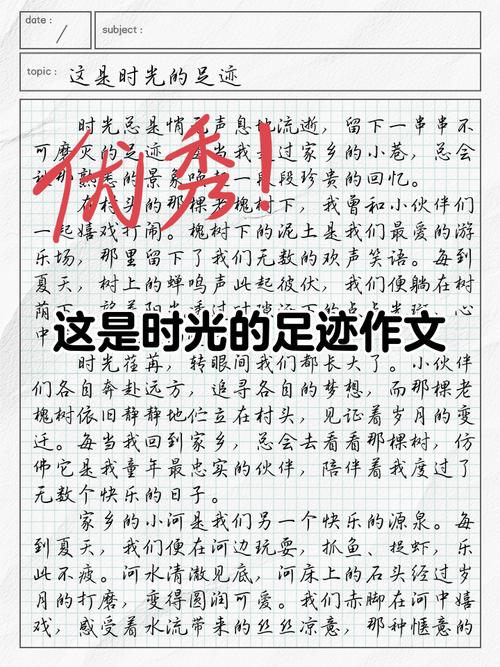 date :
/
subject :
topic : 这是时光的足迹
时光总是悄无声息地流逝，留下一串串不
可磨灭的足迹。每当我走过家乡的小巷，总会
那熟悉的景象唤起一段段珍贵的回忆。
优秀！
在村头的那棵老槐树下，我曾和小伙伴们
一起嬉戏打闹。槐树下的泥土是我们最爱的游
乐场，那里留下了我们无数的欢声笑语。每到
夏天，树上的蝉鸣声此起彼伏，我们便躺在树
荫下，望着阳光透过 洒下的点点光斑，心
中
这是时光的足迹作文
时光荏苒，转眼间我们都长大了。小伙伴
们各自奔赴远方，追寻各自的梦想，而那棵老
槐树依旧静静地伫立在村头，见证着岁月的变
迁。每当我回到家乡，总会去看看那棵树，仿
佛它是我童年最忠实的伙伴，陪伴着我度过了
无数个快乐的日子。
家乡的小河是我们另一个快乐的源泉。每
到夏天，我们便在河边玩耍，抓鱼、捉虾，乐
此不疲。河水清澈见底，河床上的石头经过岁
月的打磨，变得圆润可爱。我们赤脚在河中嬉
戏，感受着水流带来的丝丝凉意，那种惬意的